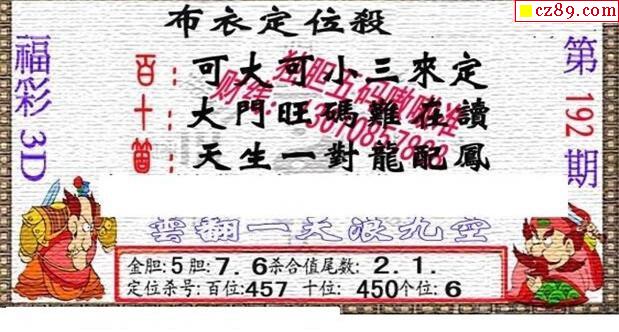 cz89.com
布衣定位殺
福彩3D
第192期
百：可大可小三來定
十：大門旺碼難在讀
個：天生一對龍配鳳
雲翻一天浪九空
金胆：5胆：7.6杀合值尾数：2.1.
定位杀号：百位：457 十位：450个位：6